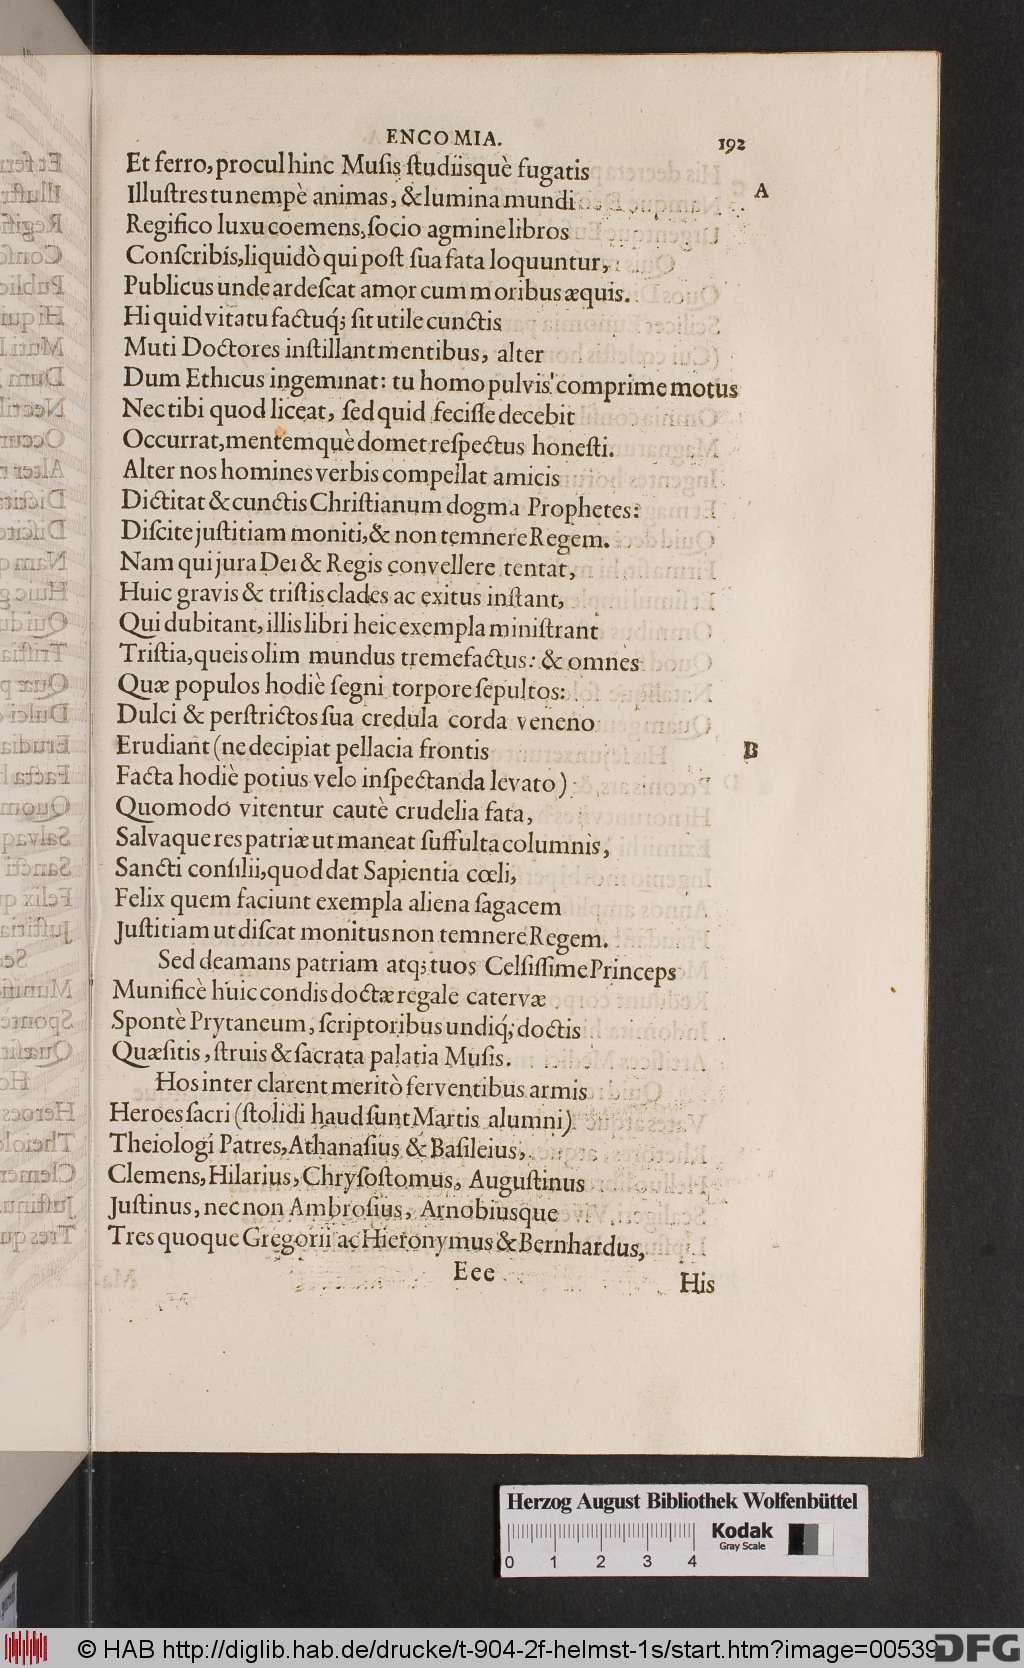 ENCOMIA.
192
Et ferro, procul hinc Muſis ſtudiisquè fugatis
A
Illuſtres tu nempè animas, & lumina mundi
Regifico luxu coemens, ſocio agmine libros
Conſcribis, liquidò qui poſt ſua fata loquuntur,
Publicus unde ardeſcat amor cum moribus æquis.
Hi quid vitatu factuq́; ſit utile cunctis
Muti Doctores inſtillant mentibus, alter
Dum Ethicus ingeminat: tu homo pulvis comprime motus
Nec tibi quod liceat, ſed quid feciſſe decebit
Occurrat, mentemquè domet reſpectus honeſti.
Alter nos homines verbis compellat amicis
Dictitat & cunctis Chriſtianum dogma Prophetes:
Diſcite juſtitiam moniti, & non temnere Regem.
Nam qui jura Dei & Regis convellere tentat,
Huic gravis & triſtis clades ac exitus inſtant,
Qui dubitant, illis libri heic exempla miniſtrant
Triſtia, queis olim mundus tremefactus: & omnes
Quæ populos hodiè ſegni torpore ſepultos:
Dulci & perſtrictos ſua credula corda veneno
B
Erudiant (ne decipiat pellacia frontis
Facta hodiè potius velo inſpectanda levato)
Quomodo vitentur cautè crudelia fata,
Salvaque res patriæ ut maneat ſuffulta columnis,
Sancti conſilii, quod dat Sapientia cœli,
Felix quem faciunt exempla aliena ſagacem
Juſtitiam ut diſcat monitus non temnere Regem.
Sed deamans patriam atq; tuos Celſiſſime Princeps
Munificè huic condis doctæ regale catervæ
Spontè Prytaneum, ſcriptoribus undiq́; doctis
Quæſitis, ſtruis & ſacrata palatia Muſis.
Hos inter clarent meritò ferventibus armis
Heroes ſacri (ſtolidi haud ſunt Martis alumni)
Theiologi Patres, Athanaſius & Baſileius,
Clemens, Hilarius, Chryſoſtomus, Auguſtinus
Juſtinus, nec non Ambroſius, Arnobiusque
Tres quoque Gregorii ac Hieronymus & Bernhardus,
Eee
His
Herzog August Bibliothek Wolfenbüttel
0 1 2 3 4
Kodak
Gray Scale
© HAB http://diglib.hab.de/drucke/t-904-2f-helmst-1s/start.htm?image=00539
DFG